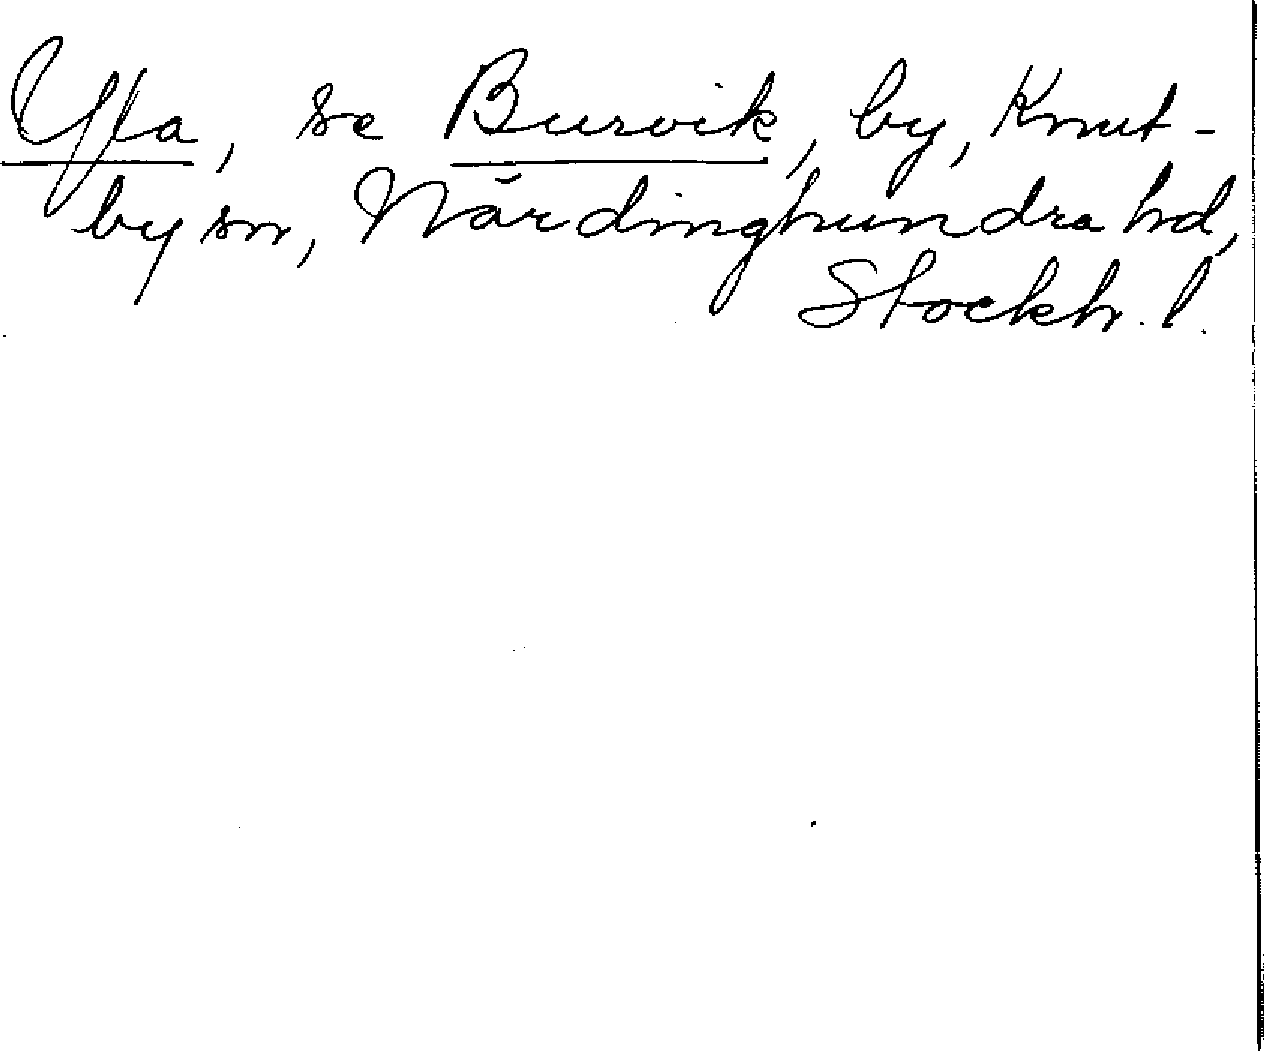 Yla, se Burvik, by, Knut-
by sn, Närdinghundra hd,
Stockh. l.